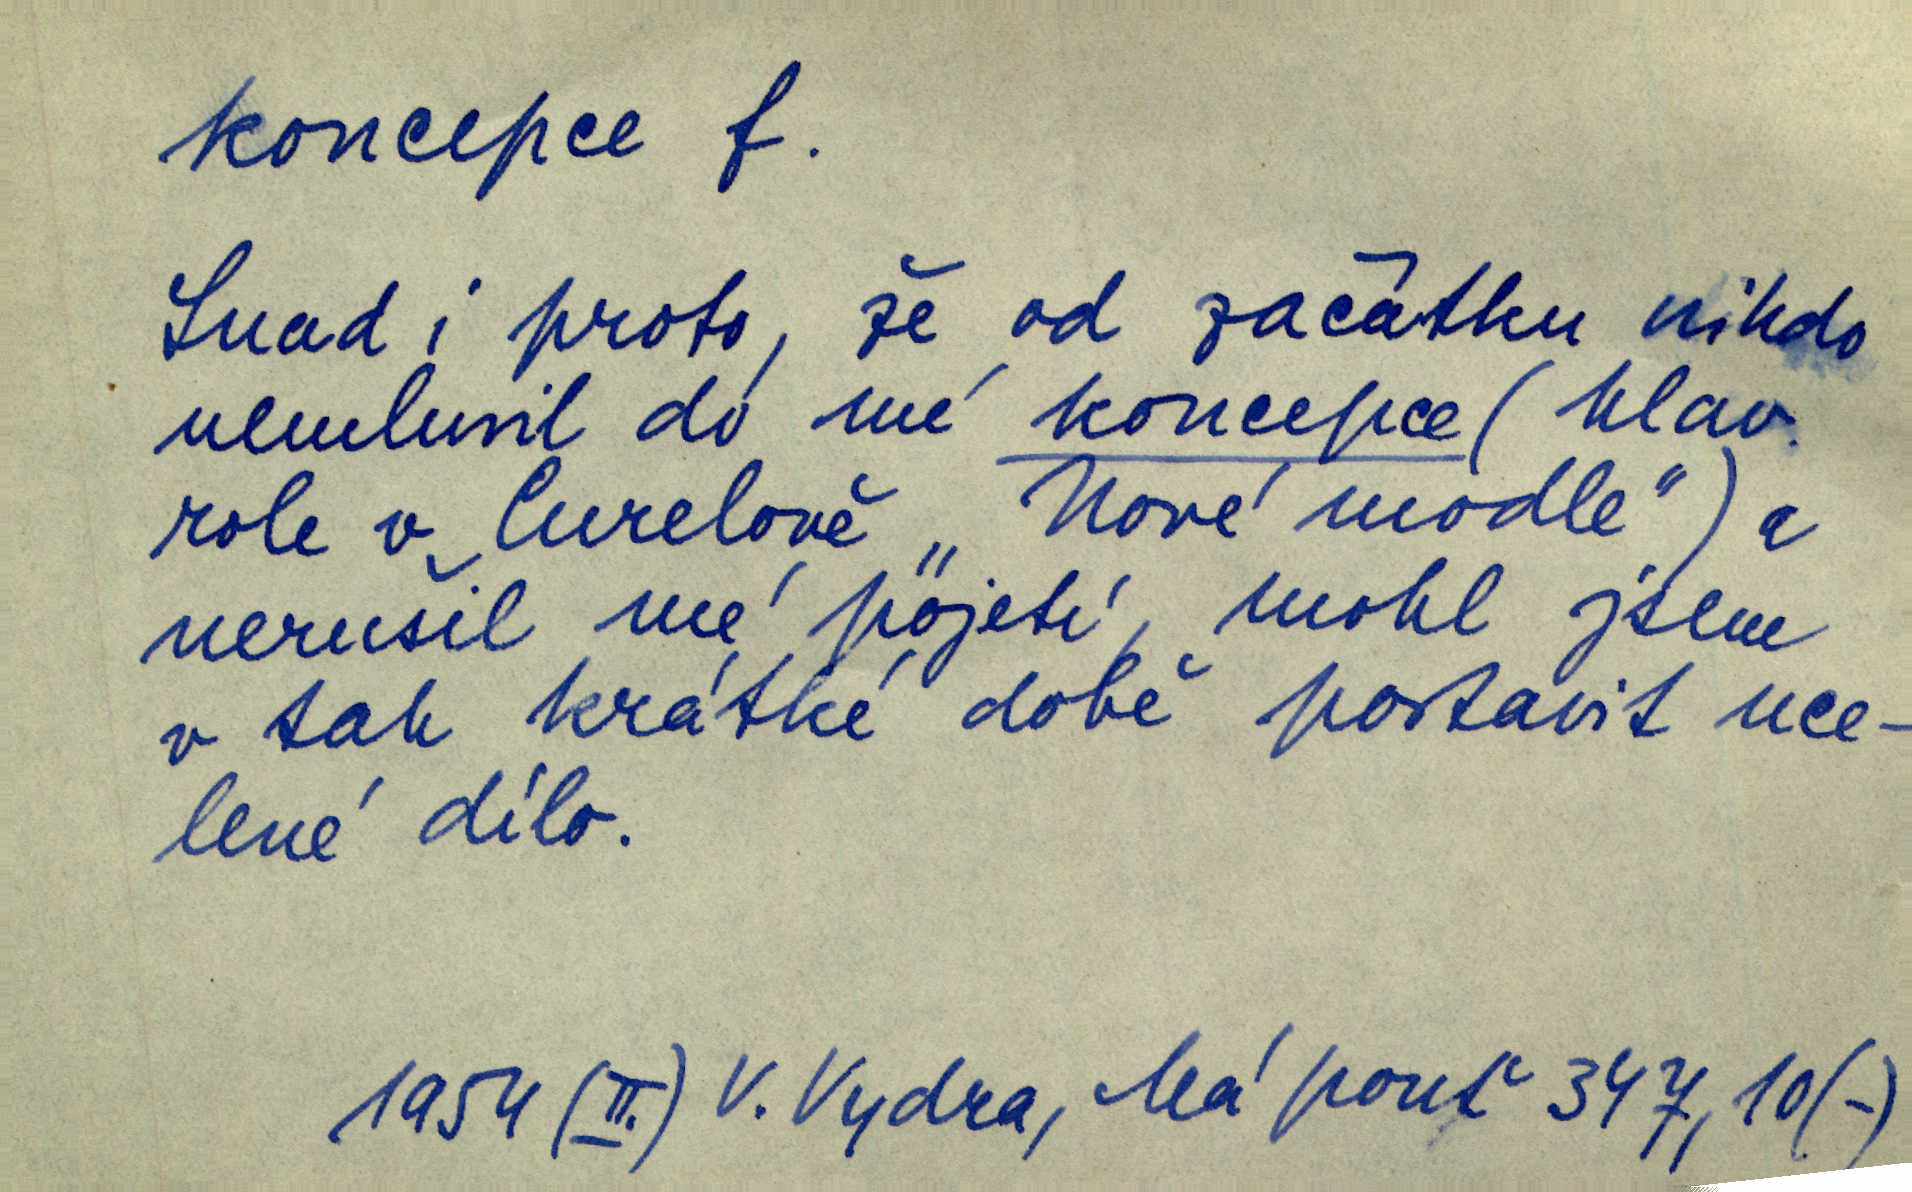 koncepce f.
Snad i proto, že od začátku nikdo
nemluvil do mé koncepce (hlav.
role v Curelově „Nové modle“) a
nerušil mé pojetí, mohl jsem
v tak krátké době postavit uce-
lené dílo.
1954 (II.) V. Vydra, Má pouť 347, 10(-)